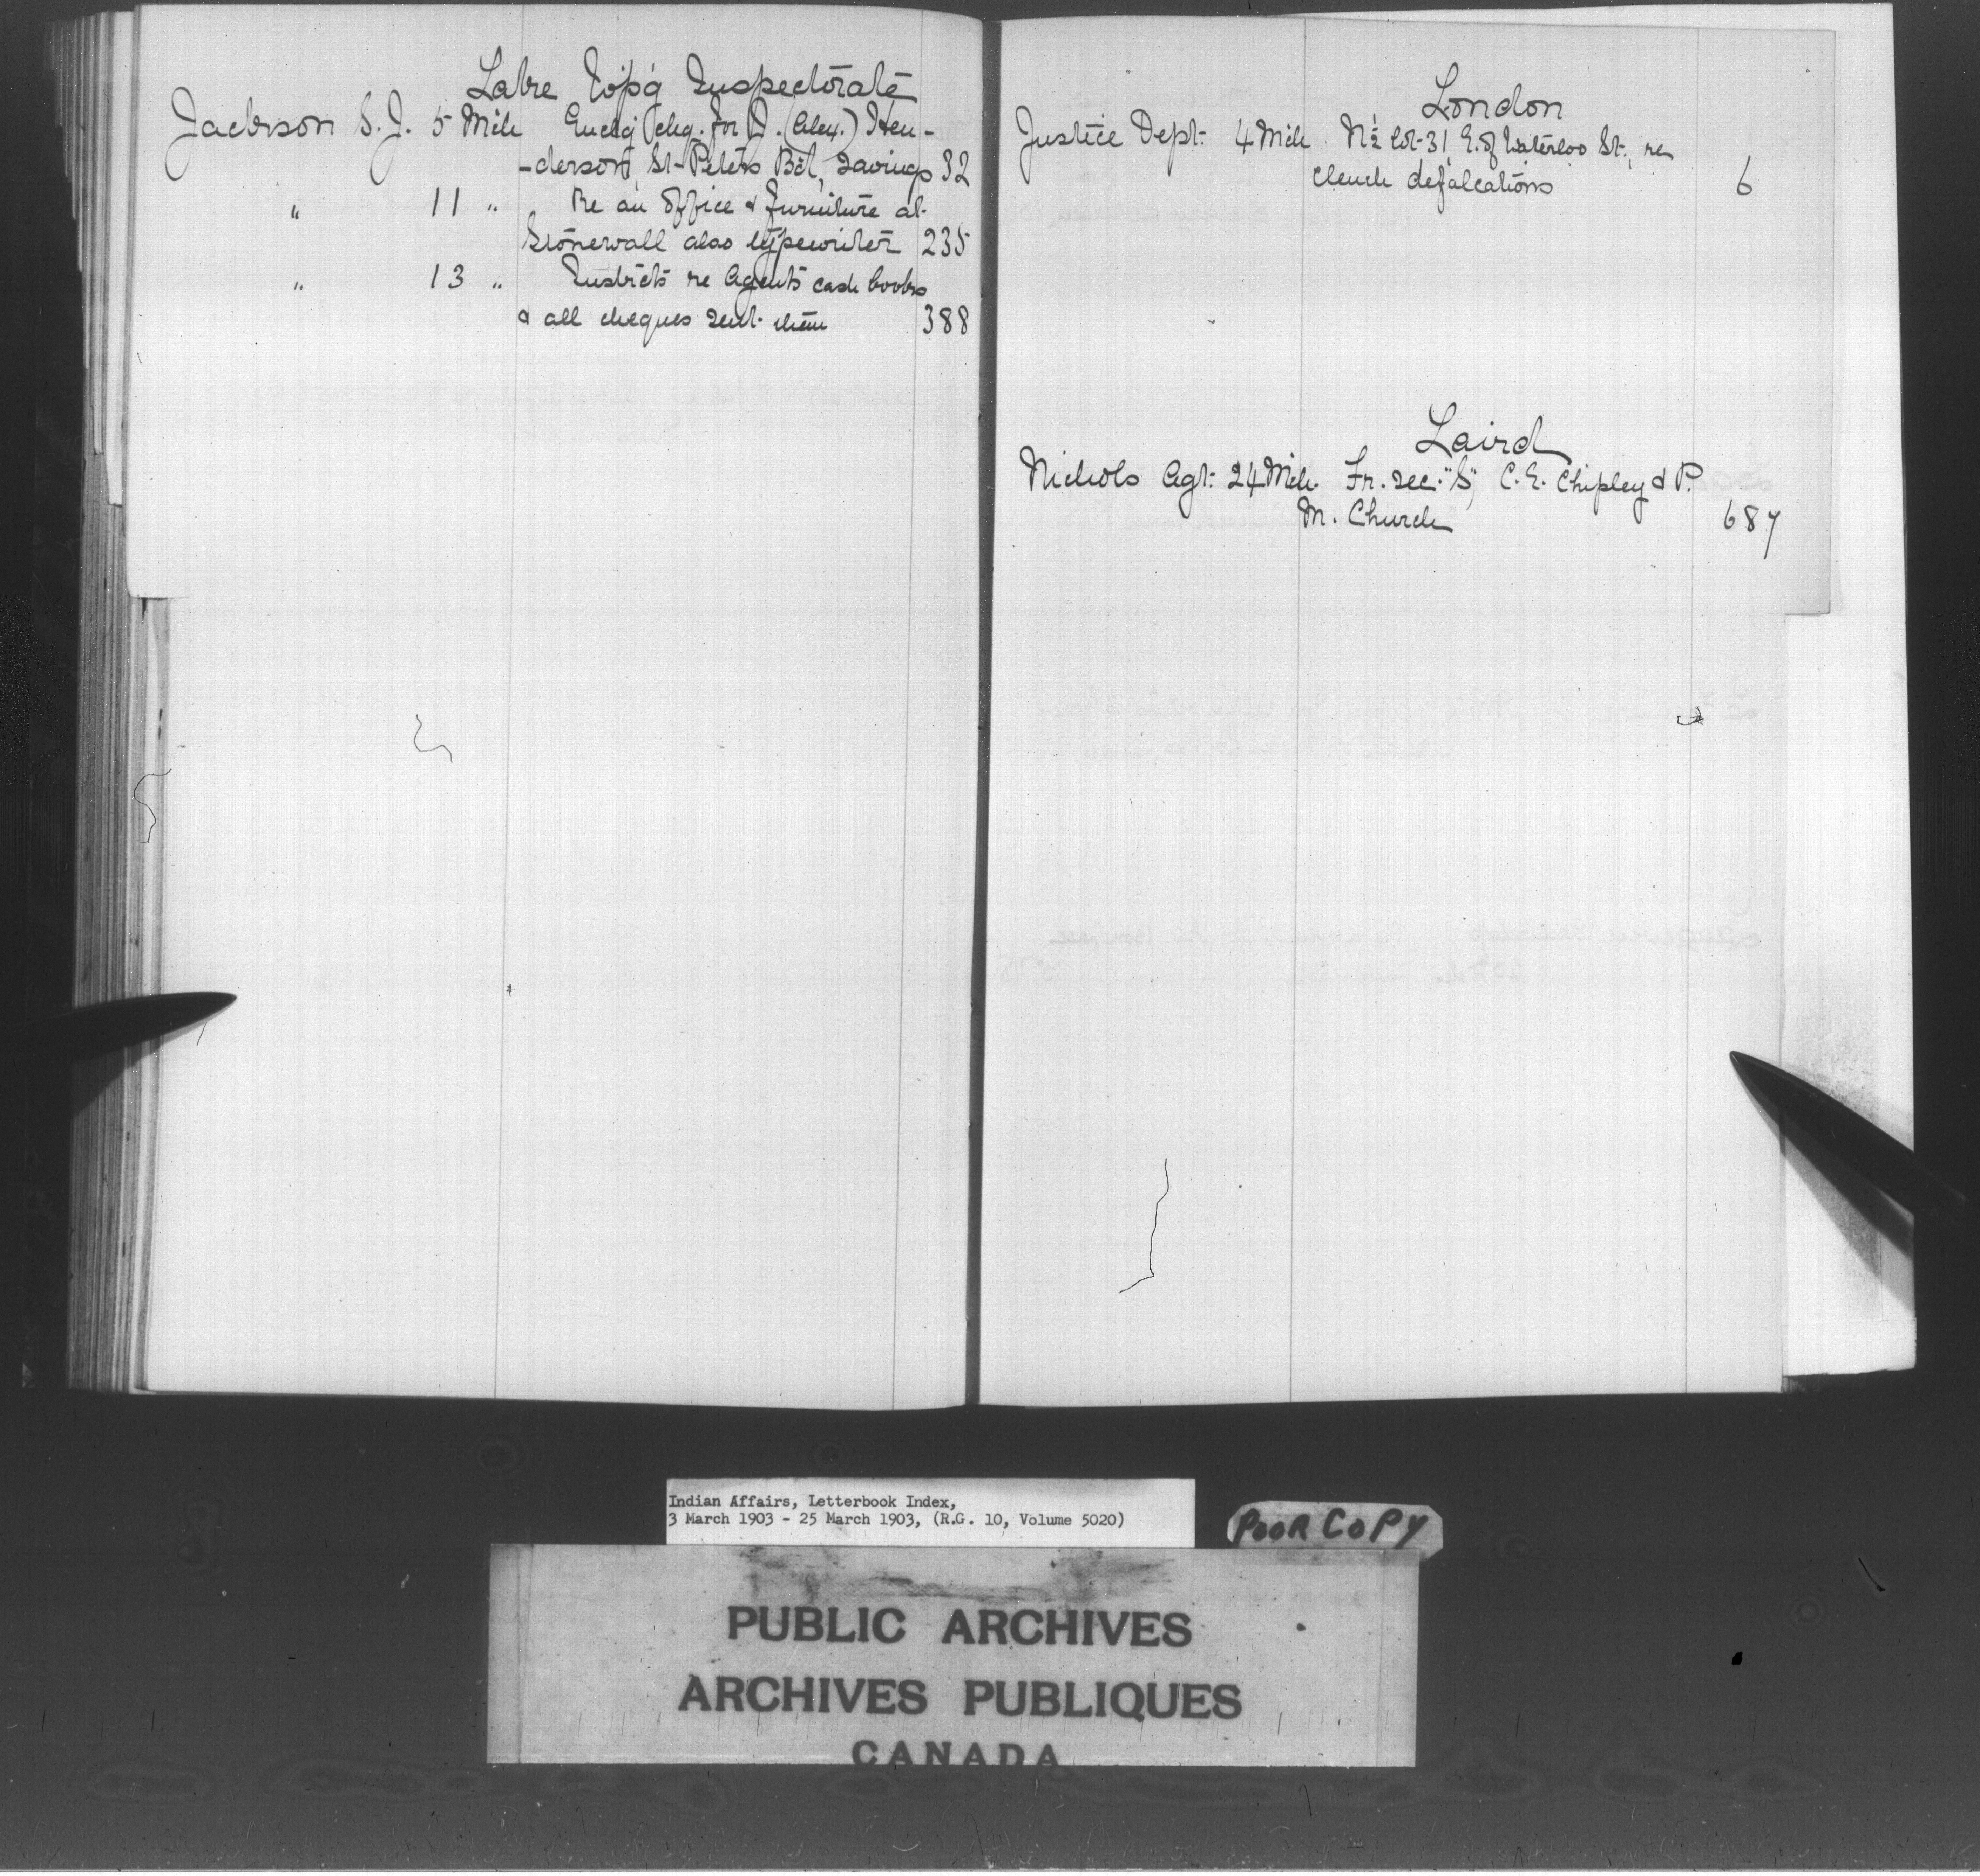 Lake W'p'g Inspectorate
Jackson S. J. 5 Mch Enclg chq. for J. (Alex.) Hen-
-derson, St. Peters Bd, savings 32
" 11 " Re an office & furniture at
Stonewall also typewriter 235
" 13 " Instrcts re Agents cash books
& all cheques sent them 388
London
Justice Dept. 4 Mch N½ lot 31, E. of Waterloo St., re
Clench defalcations 6
Laird
Nichols Agt. 24 Mch. Fr. sec. "S", C. E. Chipley & P.
M. Church 687
Indian Affairs, Letterbook Index,
3 March 1903 - 25 March 1903, (R.G. 10, Volume 5020)
POOR COPY
PUBLIC ARCHIVES
ARCHIVES PUBLIQUES
CANADA